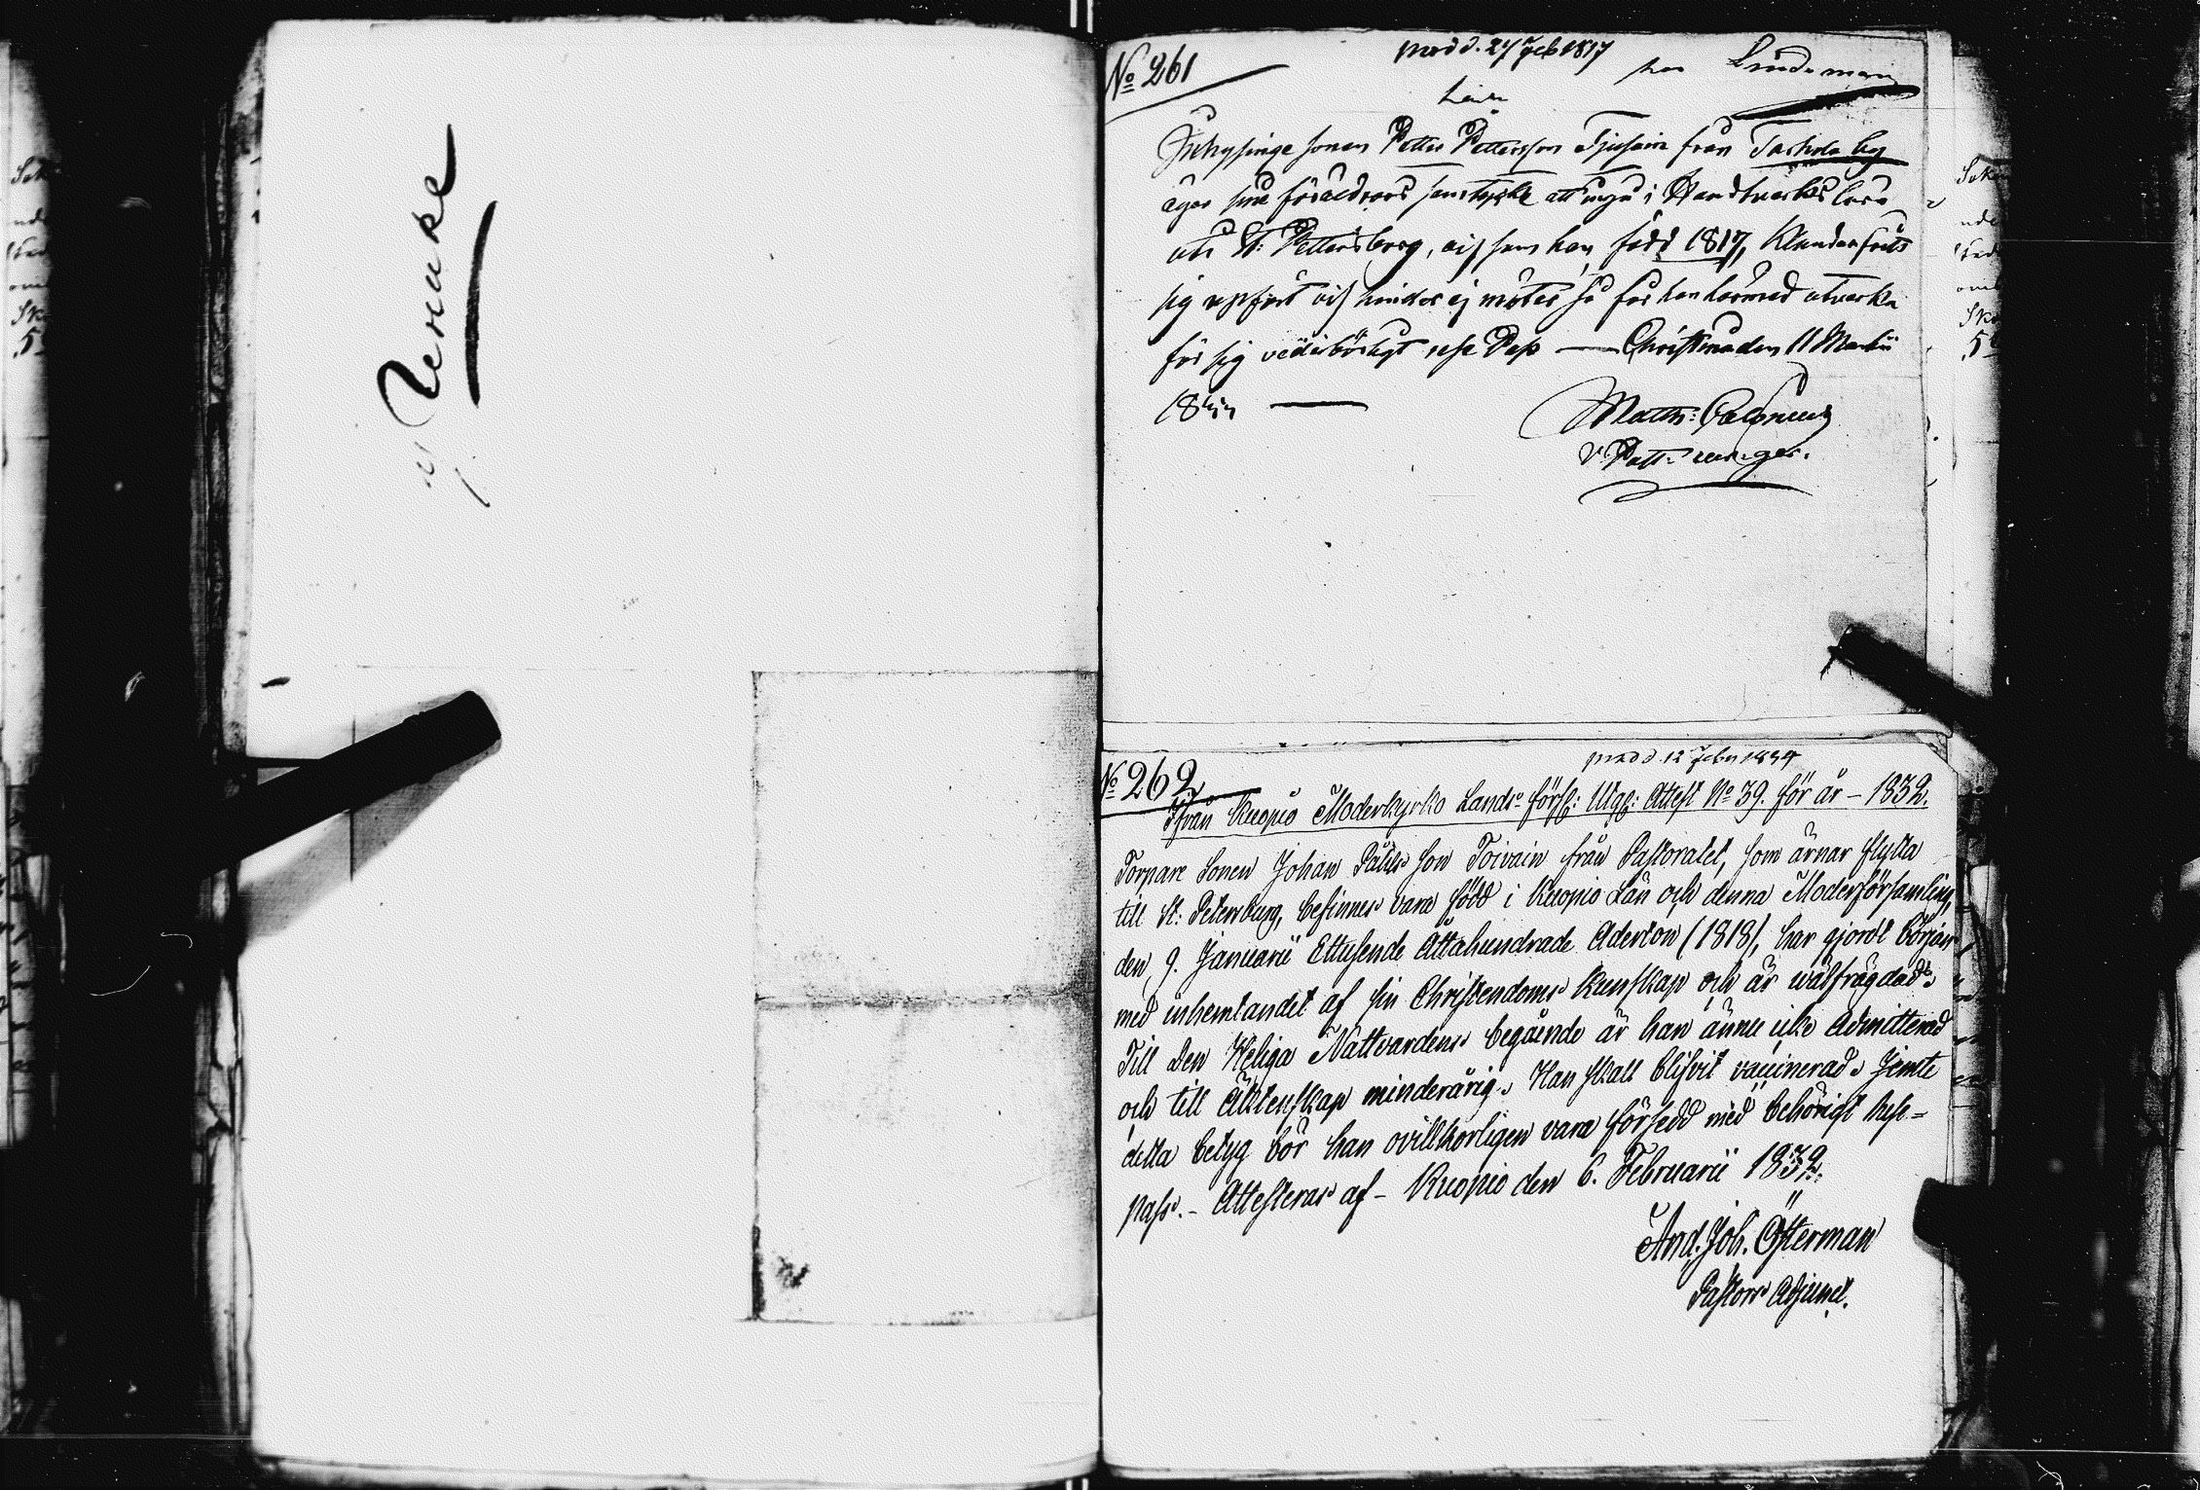 Renuke
No 261
prod d. 27 Feb 1817
hos Lindeman
Inhysinge sonen Petter Pettersson från Taskola by
äger sine föräldrars samtycke att ingå i Handtverks lära
uti St: Pettersburg, som han född 1817, Klanderfritt
sig uppfört hinder ej möter så får han härmed utverka
för sig vederbörligt rese Pass — Christina den 11 Martii
18
Matth:
v. Past:
No 262
prod d. 12 Febr 1834
Ifrån Kuopio Moderkyrko Lands förs: Utgs: Attest No 39. för år - 1832.
Torpare Sonen Johan Påhls Son Toivain från Pastoratet, som ärnar flytta
till St: Petersburg, befinnes vara född i Kuopio Län och denna Moderförsamling,
den 9. Januarii Ettusende Åttahundrade Aderton (1818), har gjordt början
med inhemtandet af sin Christendoms kunskap och är wälfrägdad.
Till Den Heliga Nattvardens begående är han ännu icke admitterad
och till Äktenskap minderårig. Han skall blifvit vaccinerad. Jemte
detta betyg bör han ovilkorligen vara försedd med behörigt rese-
pass. - Attesteras af - Kuopio den 6. Februarii 1832.
And. Joh. Österman
Pastors Adjunct.